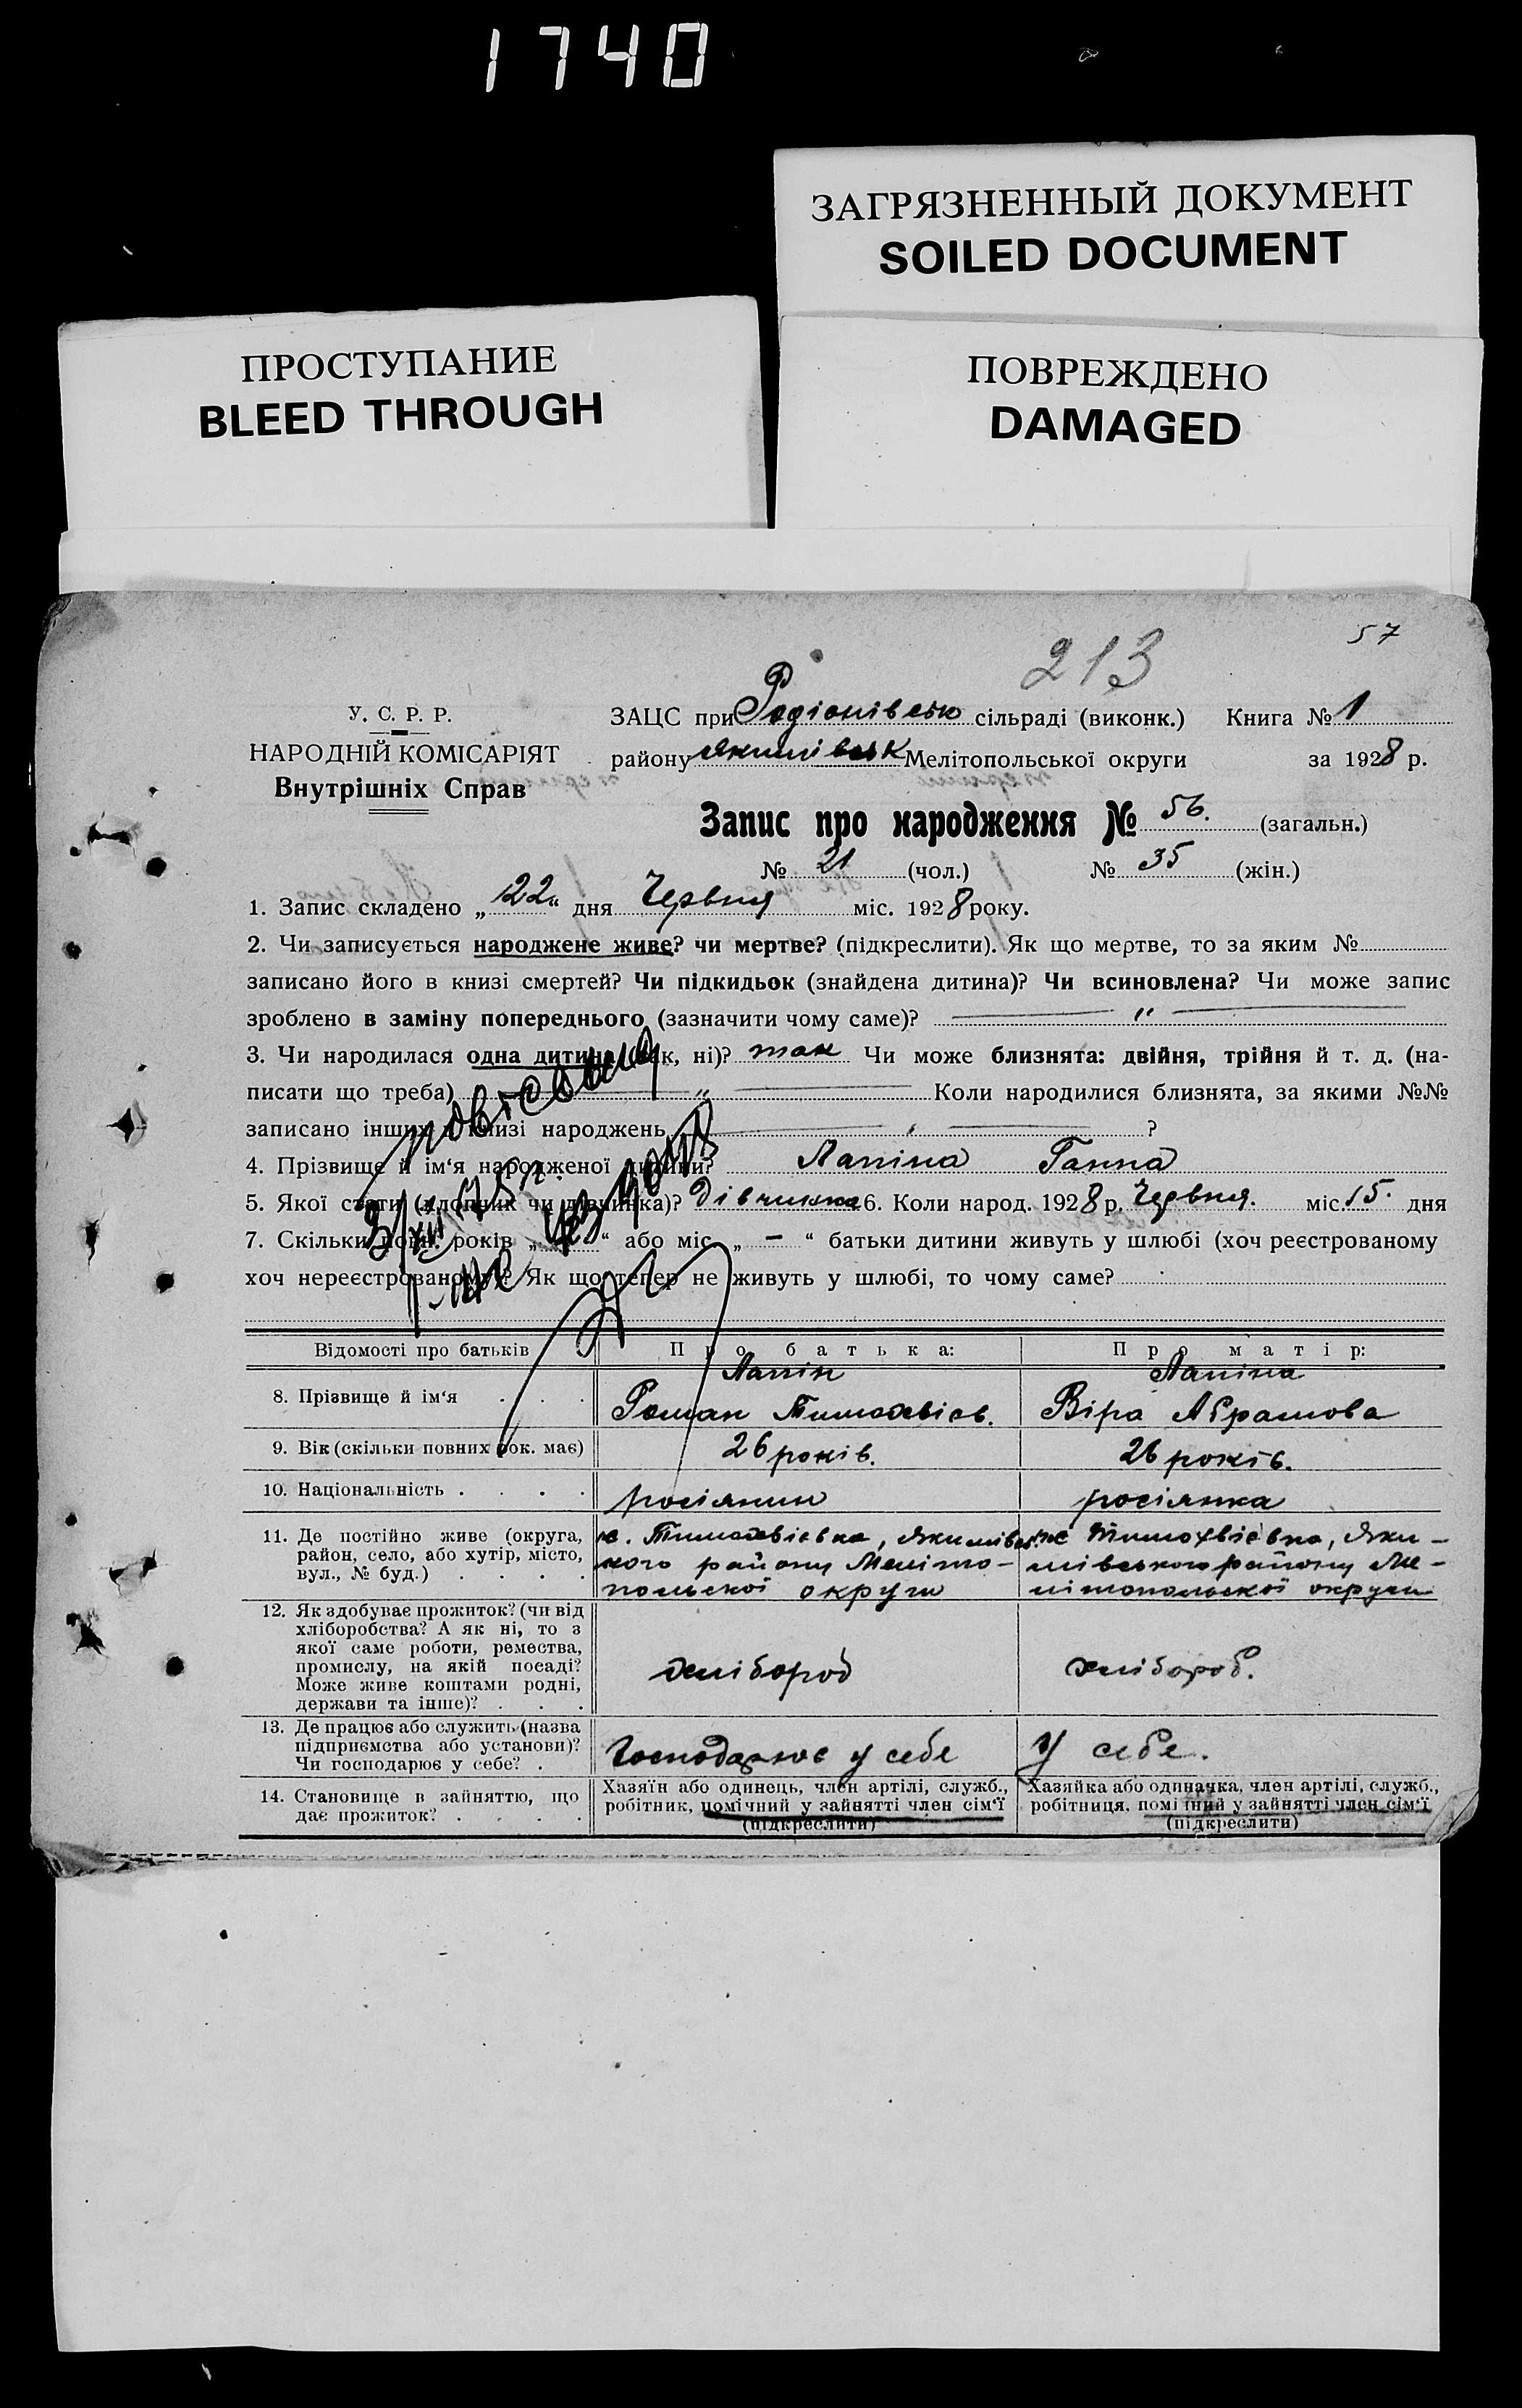 1740
ЗАГРЯЗНЕННЫЙ ДОКУМЕНТ
SOILED DOCUMENT
ПРОСТУПАНИЕ
BLEED THROUGH
ПОВРЕЖДЕНО
DAMAGED
57
213
У. С. Р. Р.
НАРОДНІЙ КОМІСАРІЯТ
Внутрішніх Справ
ЗАЦС при Родіонівськ сільраді (виконк.) Книга № 1
району Якимівськ Мелітопольської округи за 1928 р.
Запис про народження № 56. (загальн.)
№ 21 (чол.) № 35 (жін.)
1. Запис складено „22“ дня Червня міс. 1928 року.
2. Чи записується народжене живе? чи мертве? (підкреслити). Як що мертве, то за яким №
записано його в книзі смертей? Чи підкидьок (знайдена дитина)? Чи всиновлена? Чи може запис
зроблено в заміну попереднього (зазначити чому саме)? — " —
3. Чи народилася одна дитина (так, ні)? так Чи може близнята: двійня, трійня й т. д. (на-
писати що треба) — " — Коли народилися близнята, за якими №№
записано інших в книзі народжень — " — ?
4. Прізвище й ім‘я народженої дитини? Лапіна Ганна
5. Якої стати (хлопчик чи дівчинка)? Дівчинка 6. Коли народ. 1928 р. Червня. міс. 15. дня
7. Скільки повн. років „ “ або міс. „ — “ батьки дитини живуть у шлюбі (хоч реєстрованому
хоч нереєстрованому)? Як що тепер не живуть у шлюбі, то чому саме?
Відомості про батьків Про батька: Про матір:
8. Прізвище й ім‘я . . . Лапін Роман Тимохвієв. Лапіна Віра Абрамова
9. Вік (скільки повних рок. має) 26 років. 26 років.
10. Національність . . . . росіянин росіянка
11. Де постійно живе (округа, район, село, або хутір, місто, вул., № буд.) . . . .
с. Тимохвієвка, Якимівсь-
кого району Меліто-
польскої округи
с. Тимохвієвка, Яки-
мівського району Ме-
літопольскої округи
12. Як здобуває прожиток? (чи від
хліборобства? А як ні, то з
якої саме роботи, ремества,
промислу, на якій посаді?
Може живе коштами родні,
держави та інше)? . . .
хлібороб хлібороб.
13. Де працює або служить (назва
підприємства або установи)?
Чи господарює у себе? .
Господарює у себе У себе.
14. Становище в зайняттю, що
дає прожиток? . . . .
Хазяїн або одинець, член артілі, служб.,
робітник, помічний у зайнятті член сім‘ї
(підкреслити)
Хазяйка або одиначка, член артілі, служб.,
робітниця, помічний у зайнятті член сім‘ї
(підкреслити)